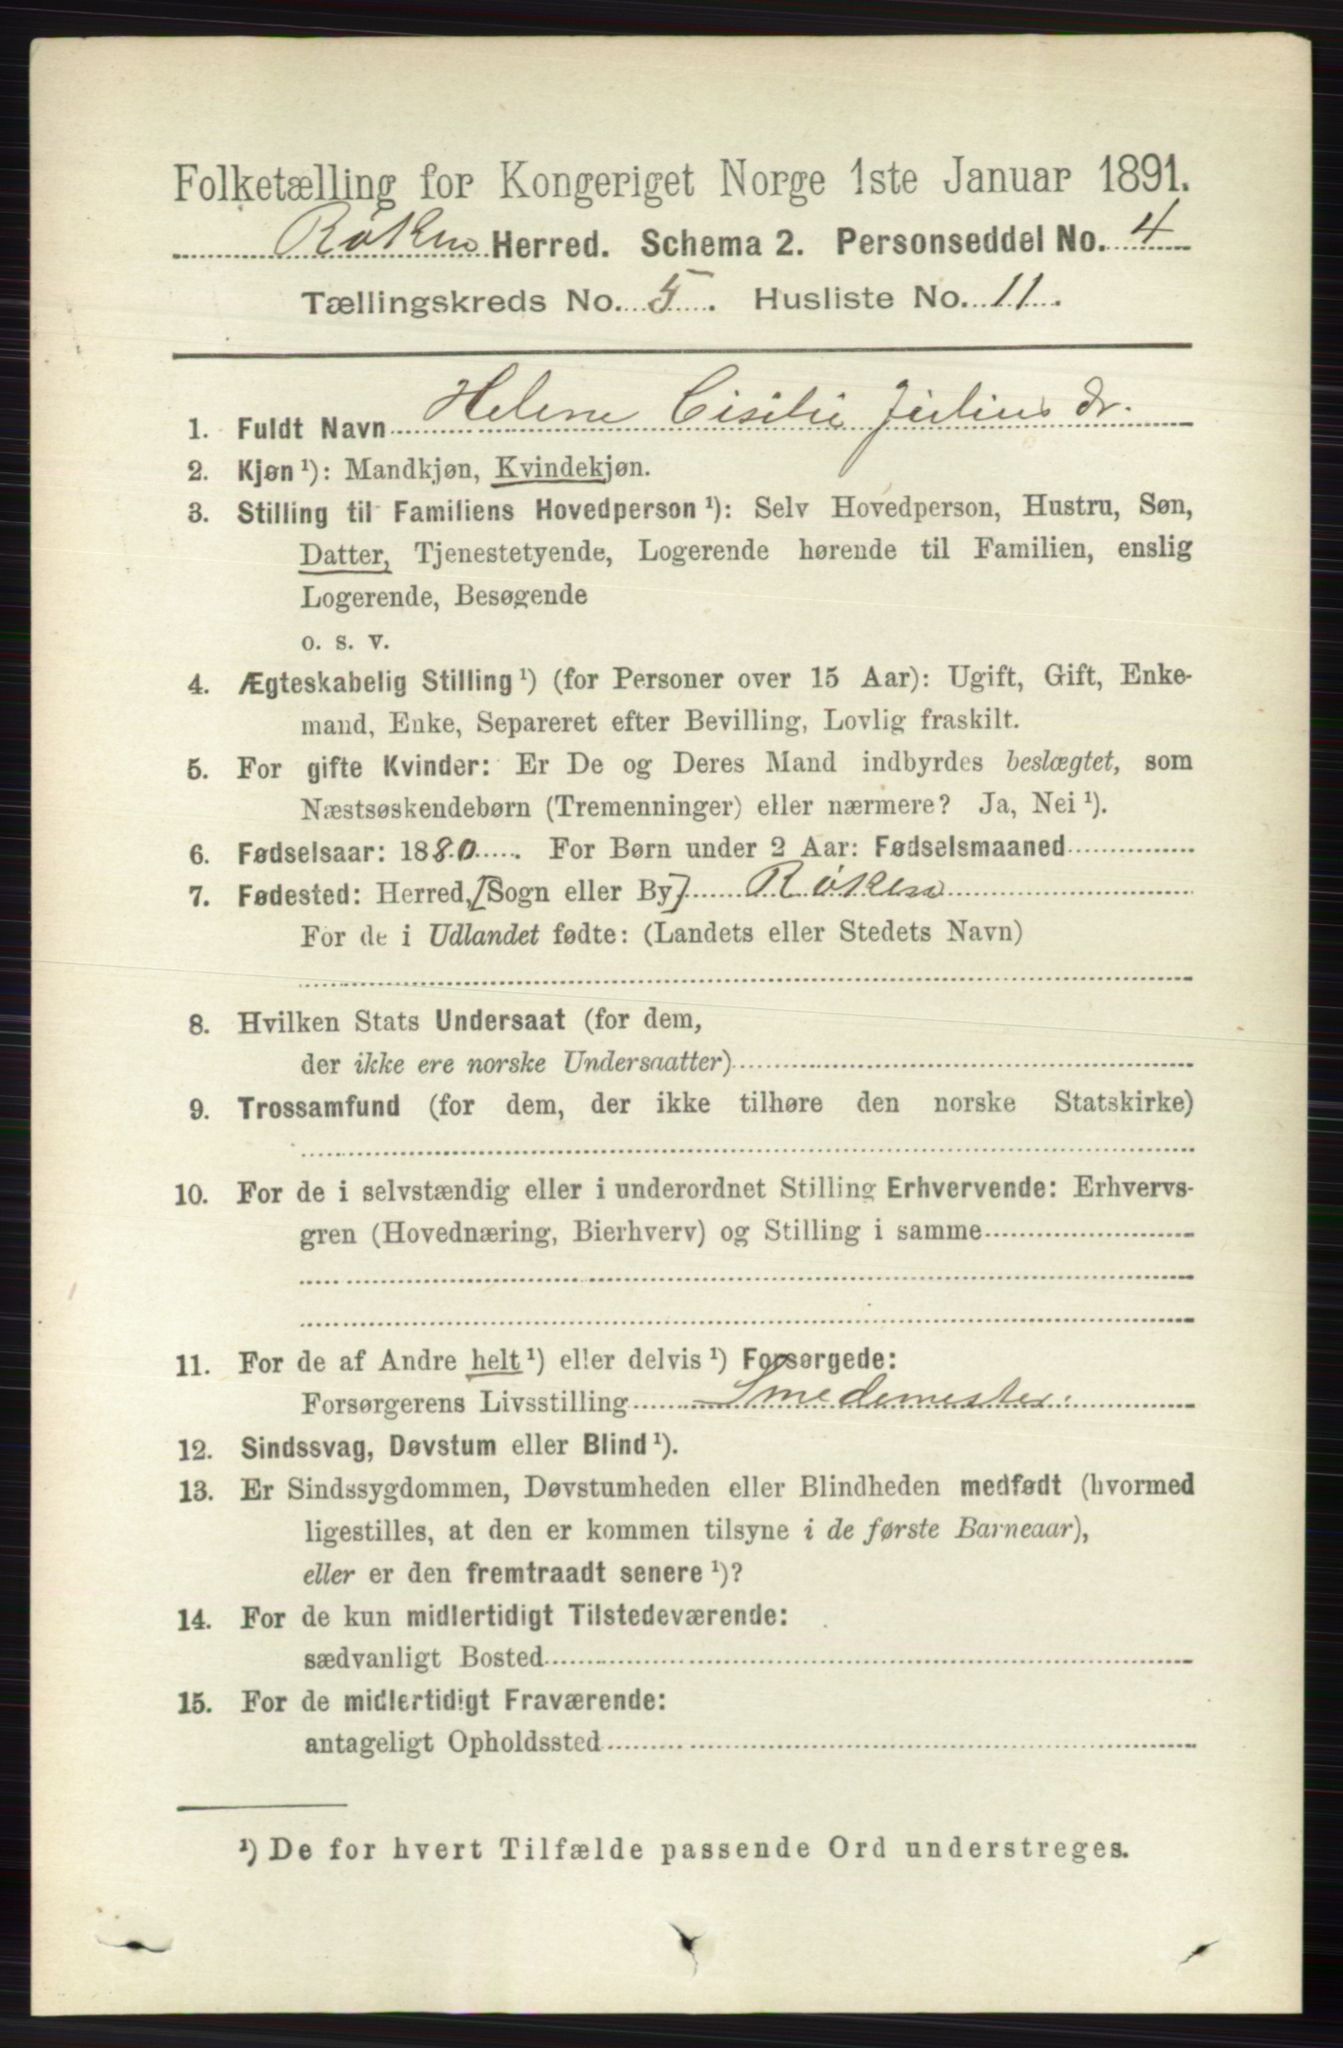 Folketælling for Kongeriget Norge 1ste Januar 1891.
Røken Herred. Schema 2. Personseddel No. 4
Tællingskreds No. 5. Husliste No. 11.
1. Fuldt Navn Helene Cisilie Julius dr.
2. Kjøn ¹): Mandkjøn, Kvindekjøn.
3. Stilling til Familiens Hovedperson ¹): Selv Hovedperson, Hustru, Søn,
Datter, Tjenestetyende, Logerende hørende til Familien, enslig
Logerende, Besøgende
o. s. v.
4. Ægteskabelig Stilling ¹) (for Personer over 15 Aar): Ugift, Gift, Enke-
mand, Enke, Separeret efter Bevilling, Lovlig fraskilt.
5. For gifte Kvinder: Er De og Deres Mand indbyrdes beslægtet, som
Næstsøskendebørn (Tremenninger) eller nærmere? Ja, Nei ¹).
6. Fødselsaar: 1880. For Børn under 2 Aar: Fødselsmaaned
7. Fødested: Herred, [Sogn eller By] Røken
For de i Udlandet fødte: (Landets eller Stedets Navn)
8. Hvilken Stats Undersaat (for dem,
der ikke ere norske Undersaatter)
9. Trossamfund (for dem, der ikke tilhøre den norske Statskirke)
10. For de i selvstændig eller i underordnet Stilling Erhvervende: Erhvervs-
gren (Hovednæring, Bierhverv) og Stilling i samme
11. For de af Andre helt ¹) eller delvis ¹) Forsørgede:
Forsørgerens Livsstilling Smedemester.
12. Sindssvag, Døvstum eller Blind ¹).
13. Er Sindssygdommen, Døvstumheden eller Blindheden medfødt (hvormed
ligestilles, at den er kommen tilsyne i de første Barneaar),
eller er den fremtraadt senere ¹)?
14. For de kun midlertidigt Tilstedeværende:
sædvanligt Bosted
15. For de midlertidigt Fraværende:
antageligt Opholdssted
¹) De for hvert Tilfælde passende Ord understreges.